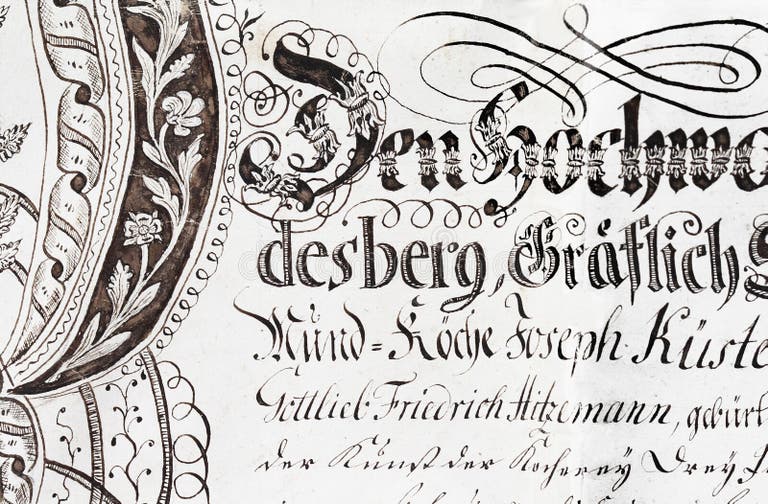 Den Hochwo
desberg, Gräflich
Mund=Köche Joseph Küste
Gottlieb Friedrich Hitzemann, gebürt
der Kunst der Kocherey Drey